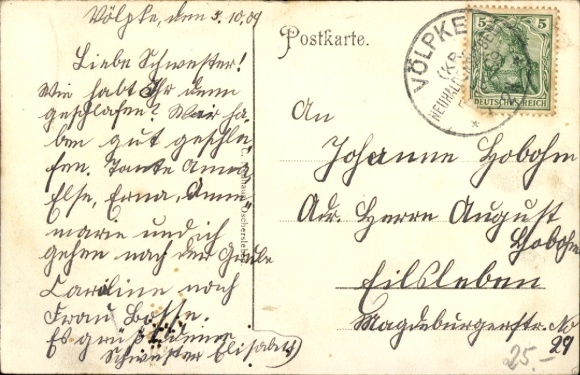 Völpke, den 5.10.09
Liebe Schwester!
Wie habt Ihr denn
geschlafen? Wir ha-
ben gut geschla-
fen. Tante Anna
Else, Erna, Anne-
marie und ich
gehen nach der Grube
Caroline nach
Frau Bosse.
Es grüßt deine
Schwester Elisabeth
Postkarte.
VÖLPKE
5 5
DEUTSCHES REICH
An
Johanne Hobohm
Adr. Herrn August
Hobohm
Eilsleben
Magdeburgerstr. No
29
25.-